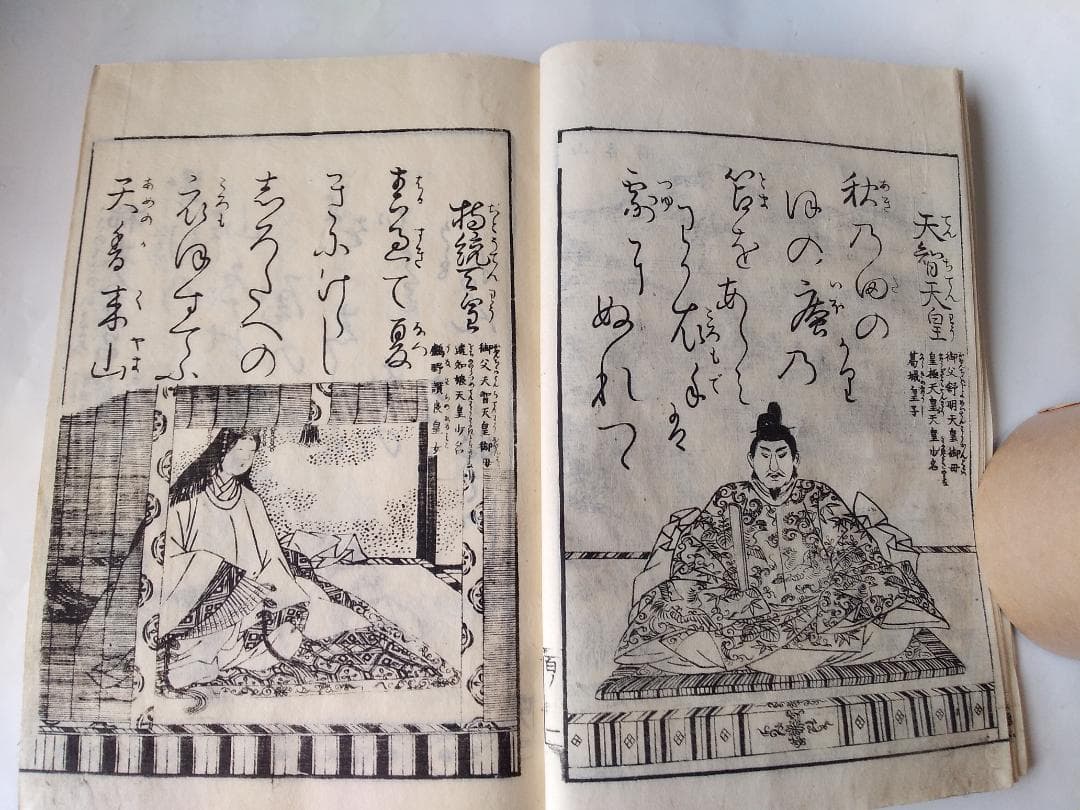 天智天皇
御父舒明天皇御母
皇極天皇天皇少名
葛城皇子
秋乃田のかり
ほの庵乃
苫をあらみ
わか衣手は
露にぬれつゝ
持統天皇
御父天智天皇御母
遠知娘天皇少名
鸕野讃良皇女
春過て夏
きにけらし
しろたへの
衣ほすてふ
天香来山